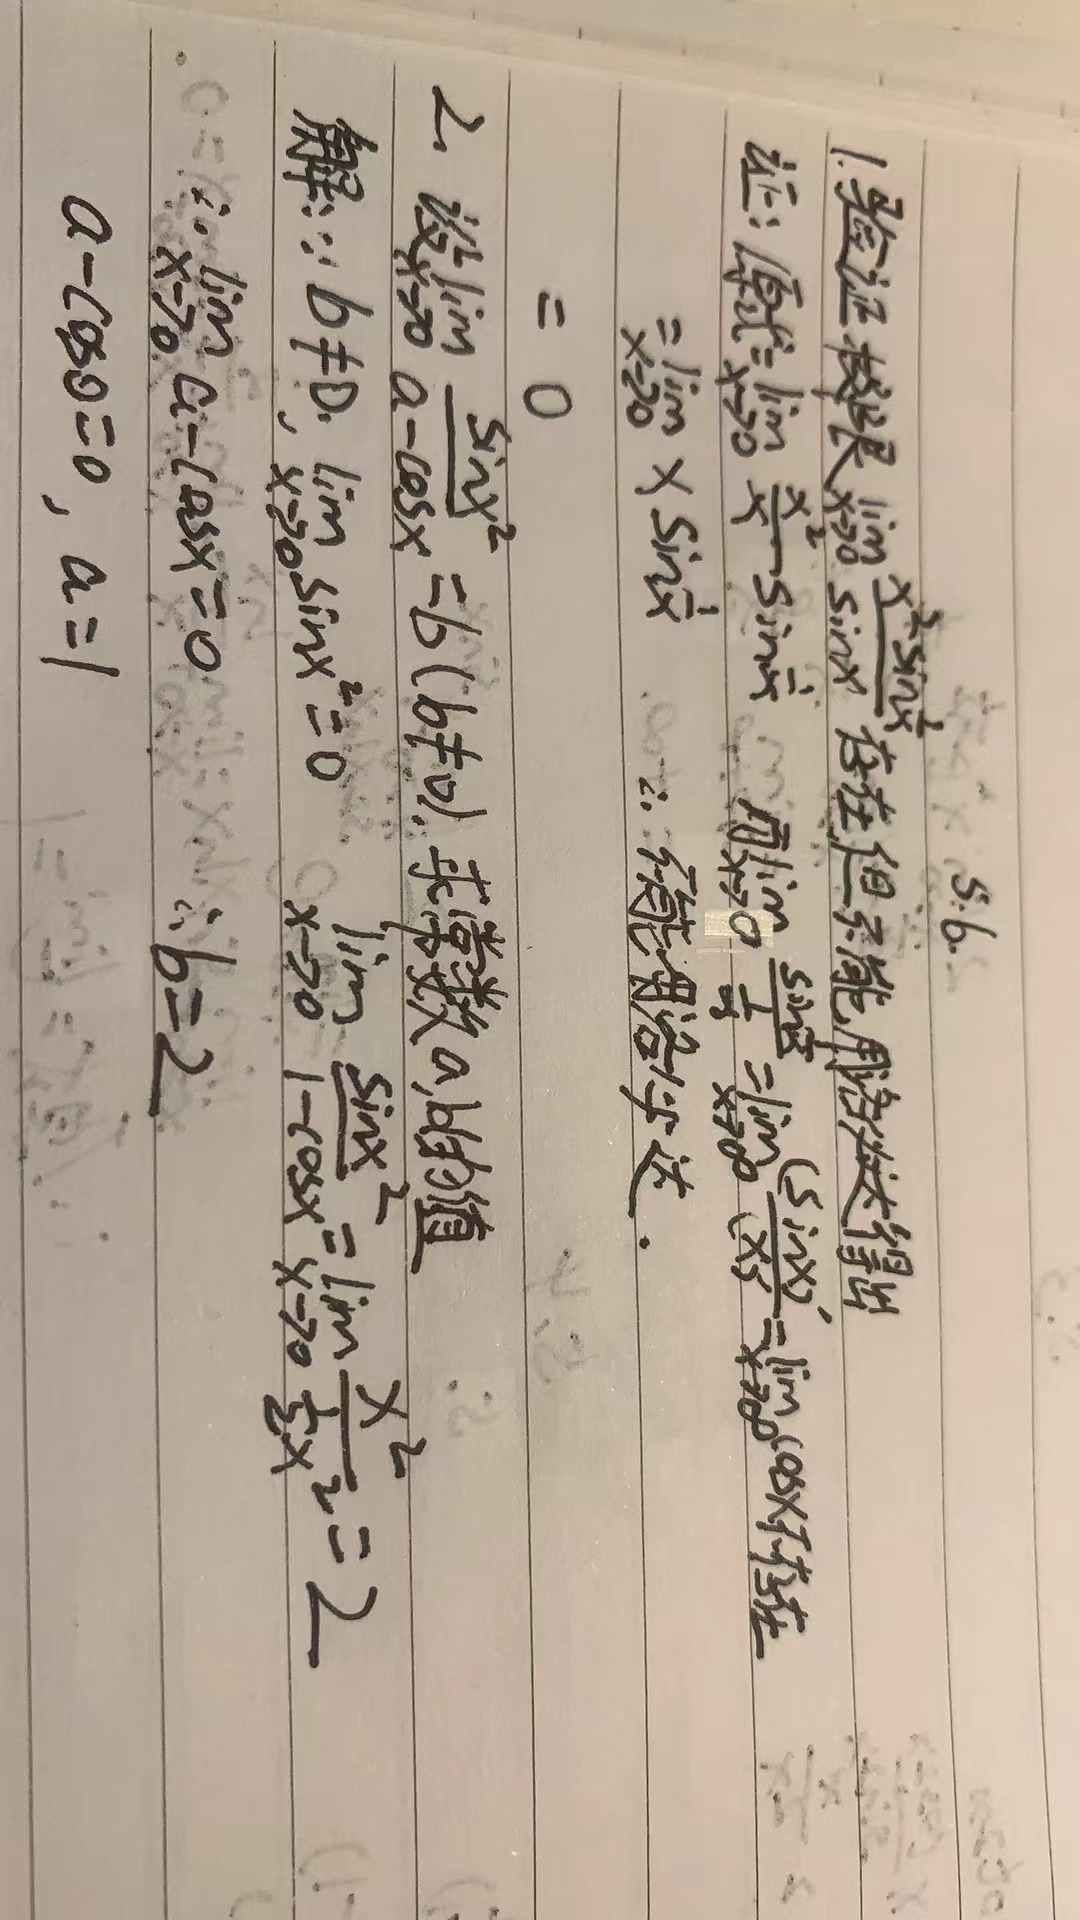 5.6.
1.验证极限 lim x→0 x²sin1/x / sinx 存在,但不能用洛必达得出
证:原式=lim x→0 x²/x sin1/x 用lim x→0 sin1/x / 1/x =lim x→∞ (sinx)'/(x)' =lim x→∞ cosx不存在
=lim x→0 x sin1/x ∴ 不能用洛必达.
= 0
2. 设lim x→0 sinx²/a-cosx =b(b≠0).求常数a,b的值
解:∵b≠0, lim x→0 sinx²=0 lim x→0 sinx²/1-cosx =lim x→0 x²/½x² =2
∴ lim x→0 a-cosx=0 ∴b=2
a-cos0=0, a=1